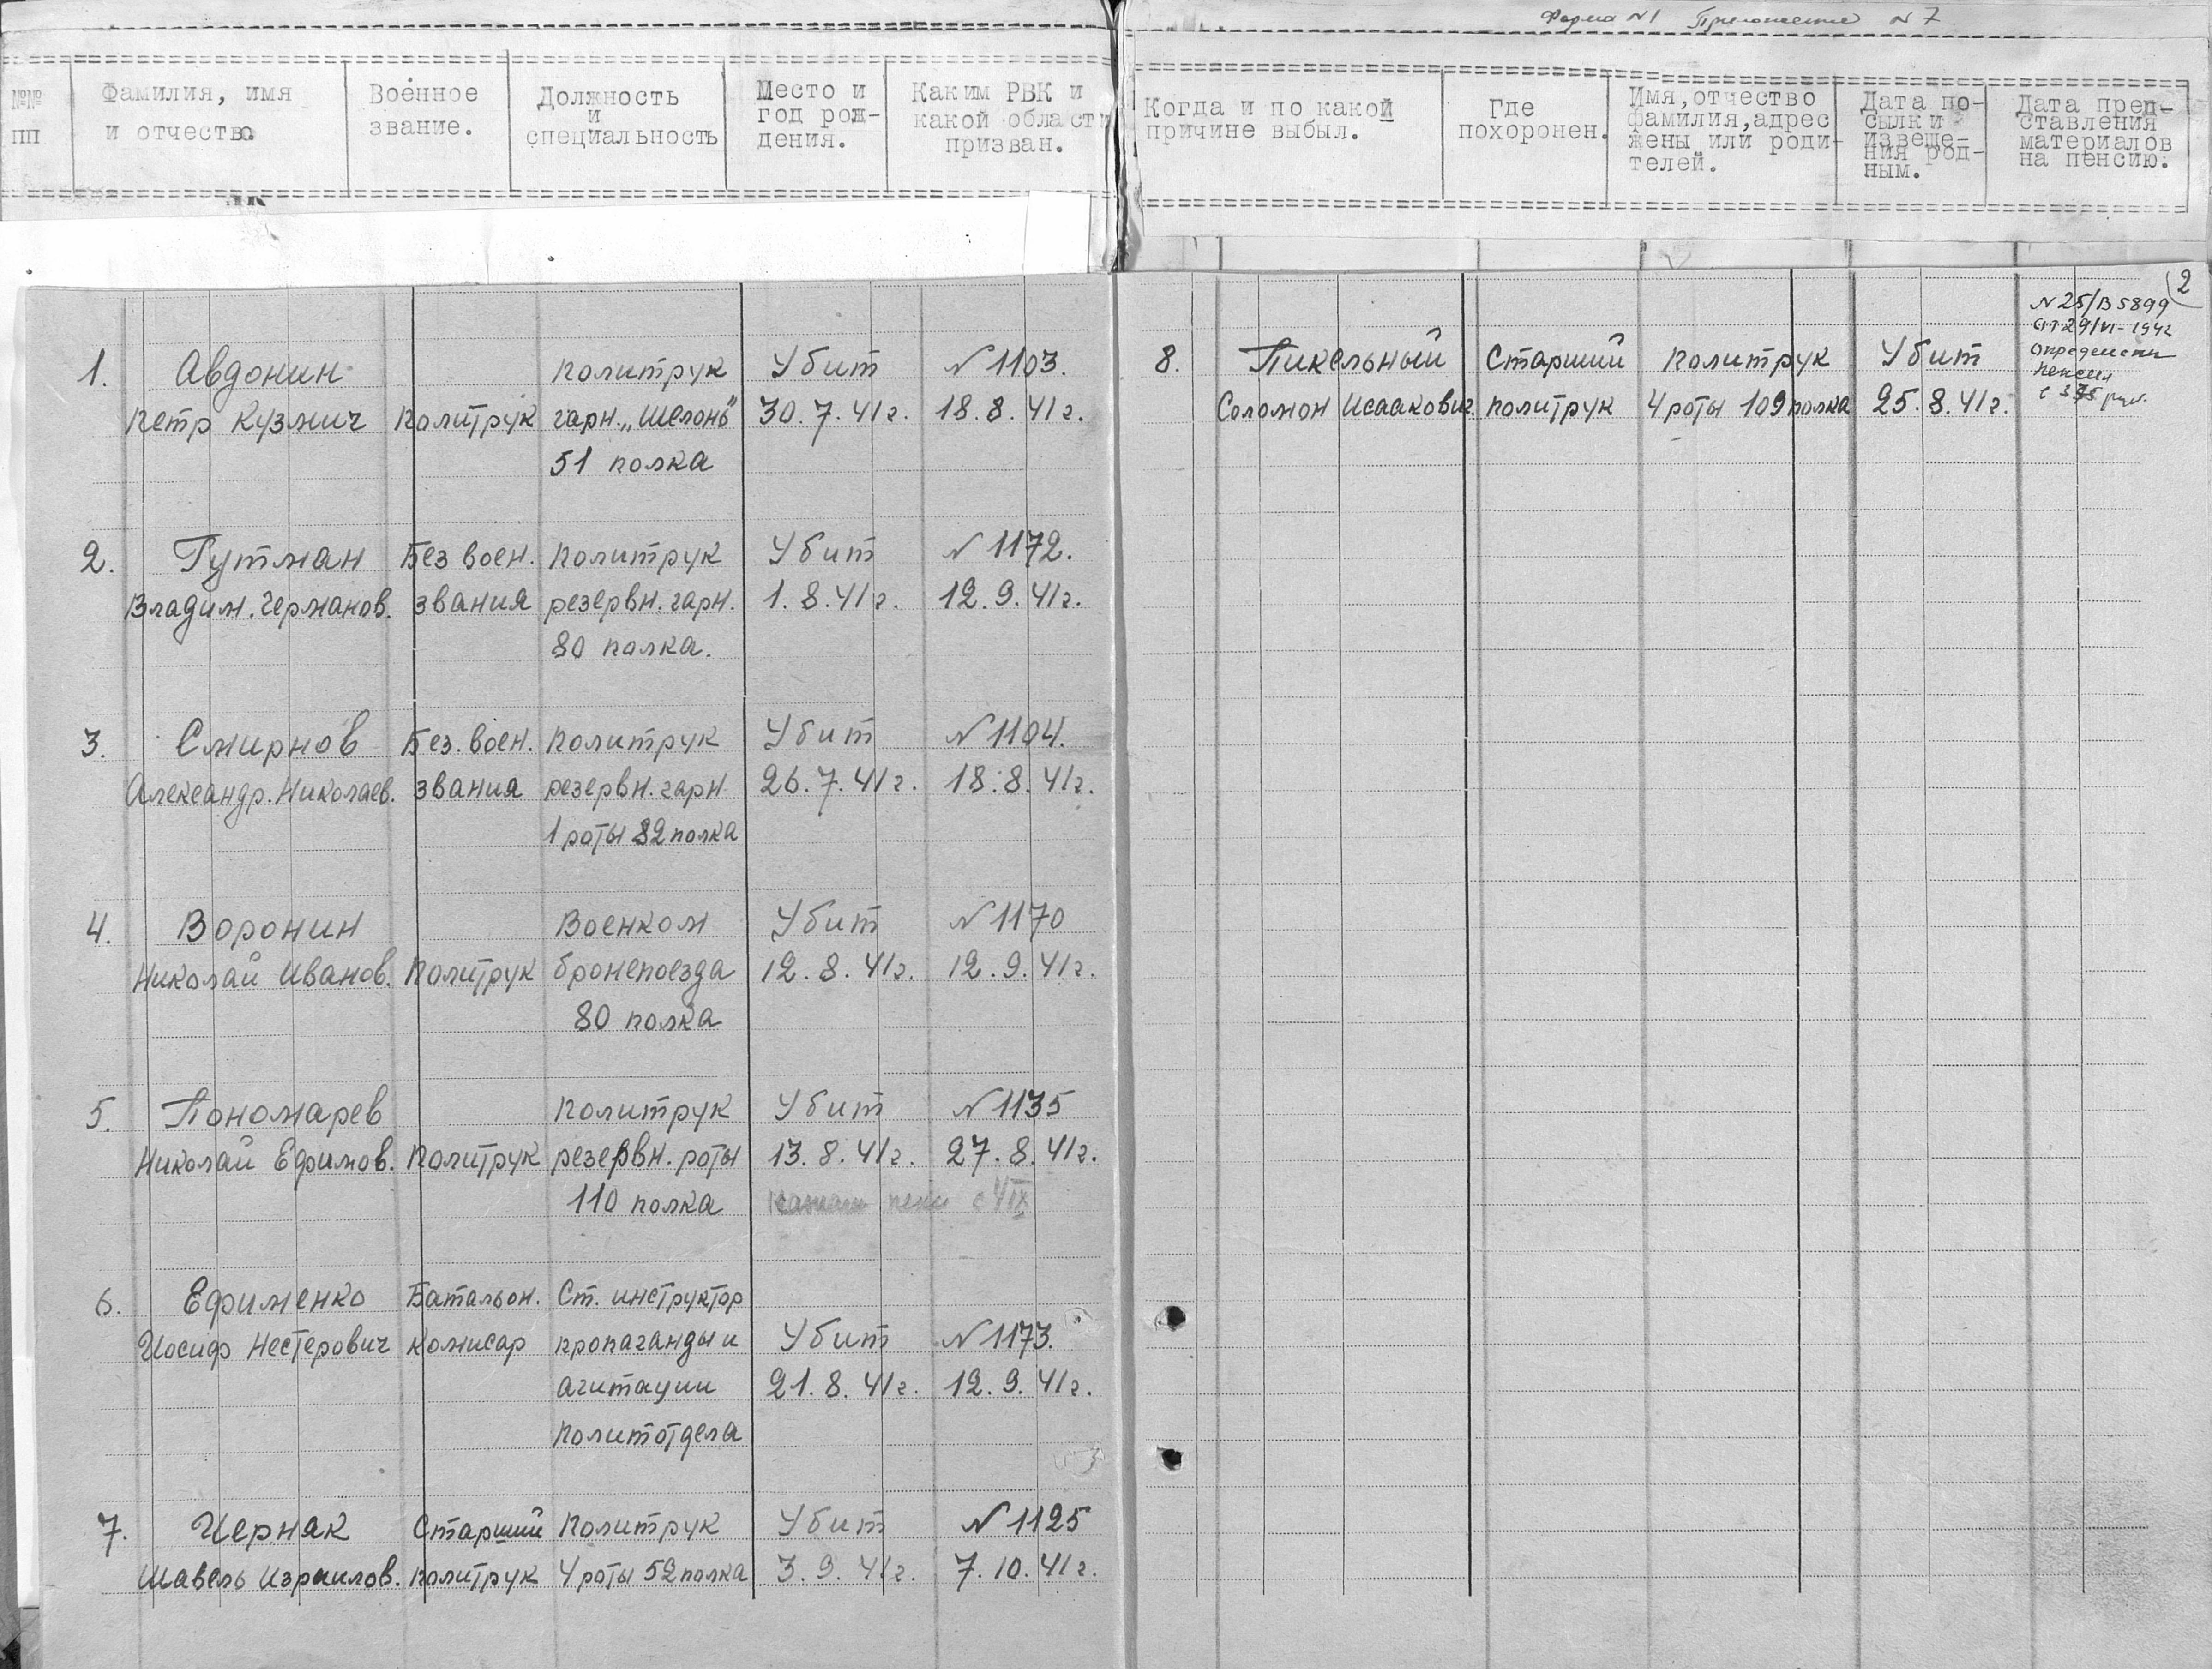 Форма №1 Приложение №7
№№ пп
Фамилия, имя и отчество
Военное звание.
Должность и специальность
Место и год рож-дения.
Каким РВК и какой области призван.
Когда и по какой причине выбыл.
Где похоронен.
Имя, отчество фамилия, адрес жены или роди-телей.
Дата по-сылки извеще-ния род-ным.
Дата пред-ставления материалов на пенсию.
1. Авдонин политрук Убит №1103.
Петр Кузмич Политрук гарн. „Шелонь" 30.7.41г. 18.8.41г.
51 полка
2. Гутман Без воен. Политрук Убит №1172.
Владим. Германов. звания резервн. гарн. 1.8.41г. 12.9.41г.
80 полка.
3. Смирнов Без. воен. Политрук Убит №1104.
Александр. Николаев. звания резервн. гарн. 26.7.41г. 18.8.41г.
1 роты 82 полка
4. Воронин Военком Убит №1170
Николай Иванов. Политрук бронепоезда 12.8.41г. 12.9.41г.
80 полка
5. Пономарев Политрук Убит №1135
Николай Ефимов. Политрук резервн. роты 13.8.41г. 27.8.41г.
110 полка
6. Ефименко Батальон. Ст. инструктор
Иосиф Нестерович комисар пропаганды и Убит №1173.
агитации 21.8.41г. 12.9.41г.
политотдела
7. Черняк Старший Политрук Убит №1125
Шавель Израилов. политрук 4 роты 52 полка 3.9.41г. 7.10.41г.
2
№25/В5899
от 29/VI-1942
определена
пенсия
с 375 руб.
8. Пикельный Старший Политрук Убит
Соломон Исаакович политрук 4 роты 109 полка 25.8.41г.